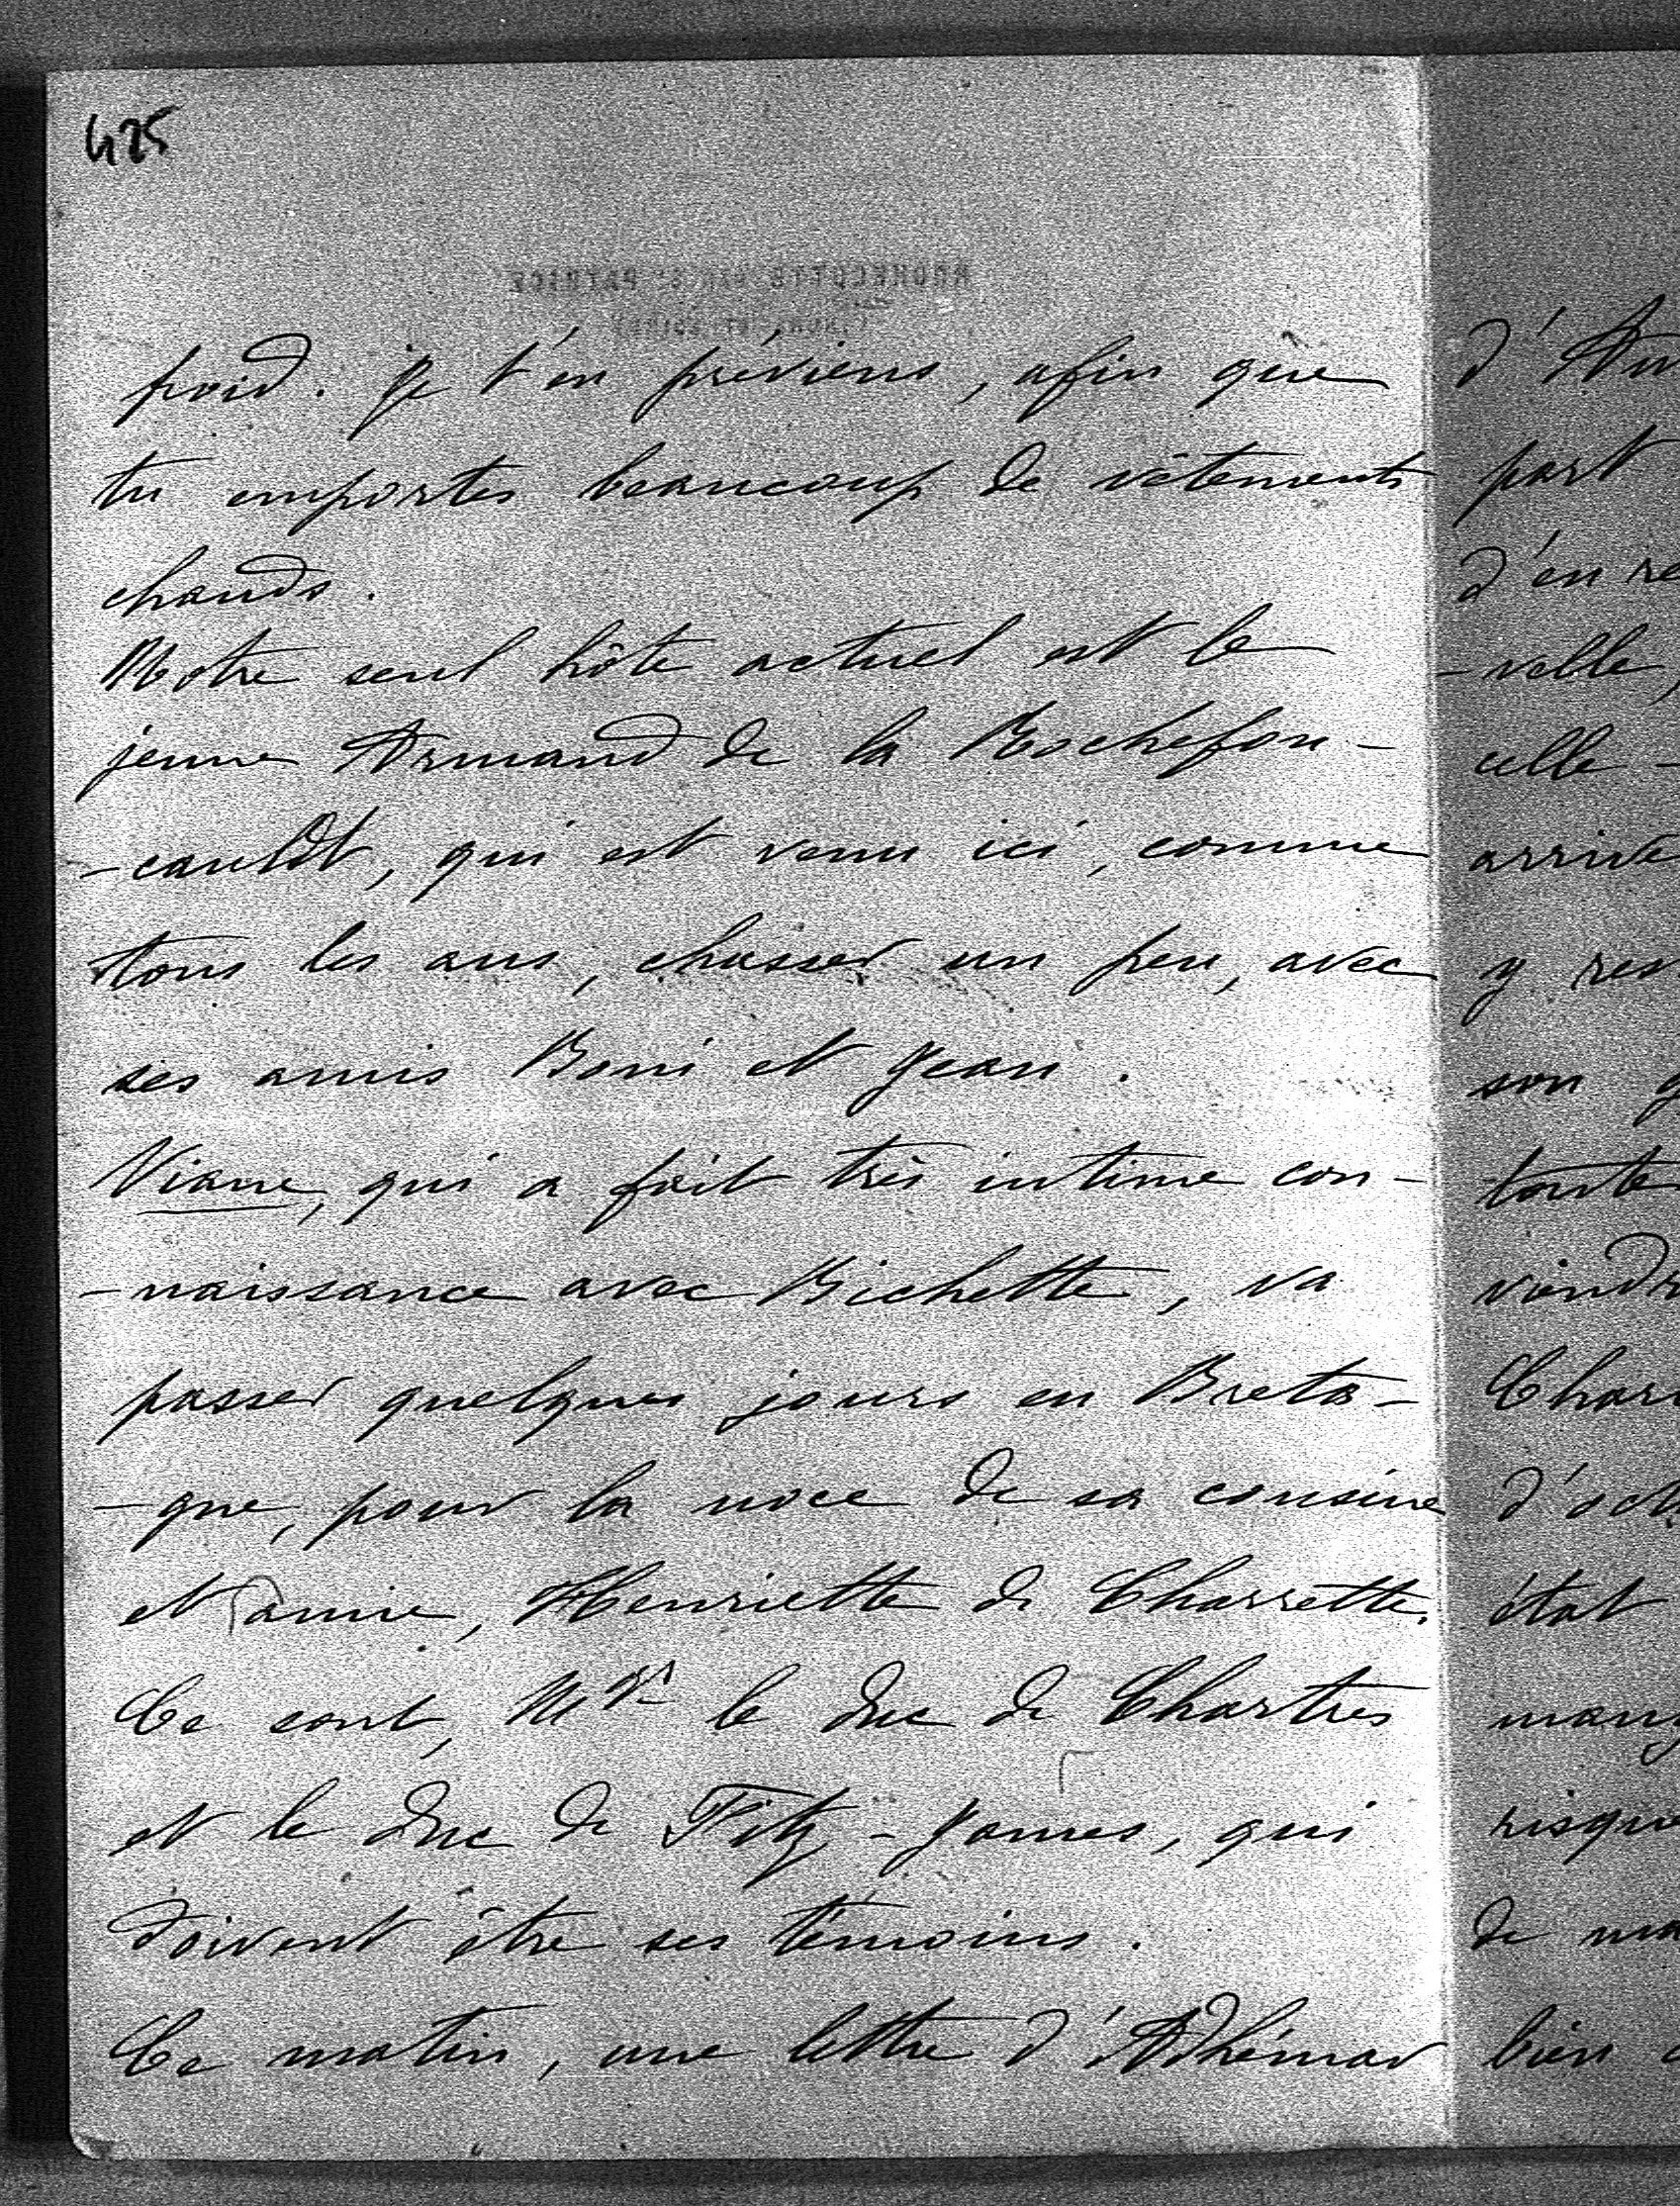 425
froid. Je t'en préviens, afin que
tu emportes beaucoup de vêtements
chauds.
Notre seul hôte actuel est le
jeune Armand de la Rochefou-
-cauldt, qui est venu ici, comme
tous les ans, chasser un peu, avec
ses amis Boni et Jean.
Viane, qui a fait très intime con-
-naissance avec Bichette, va
passer quelques jours en Breta-
-gne, pour la noce de sa cousine
et amie, Henriette de Charrette.
Ce sont, Mgr le duc de Chartres
et le duc de Fitz-James, qui
doivent être ses témoins.
Ce matin, une lettre d'Adhémar
part
d'en re
-velle,
celle-
arrive
y res
son
toute
viend
Char
d'oct
état
mang
risque
de ma
bien